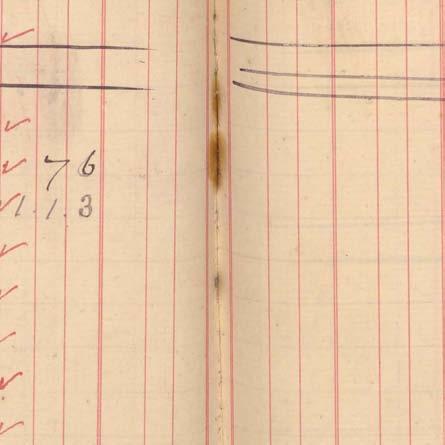 7 6
1. 1. 3